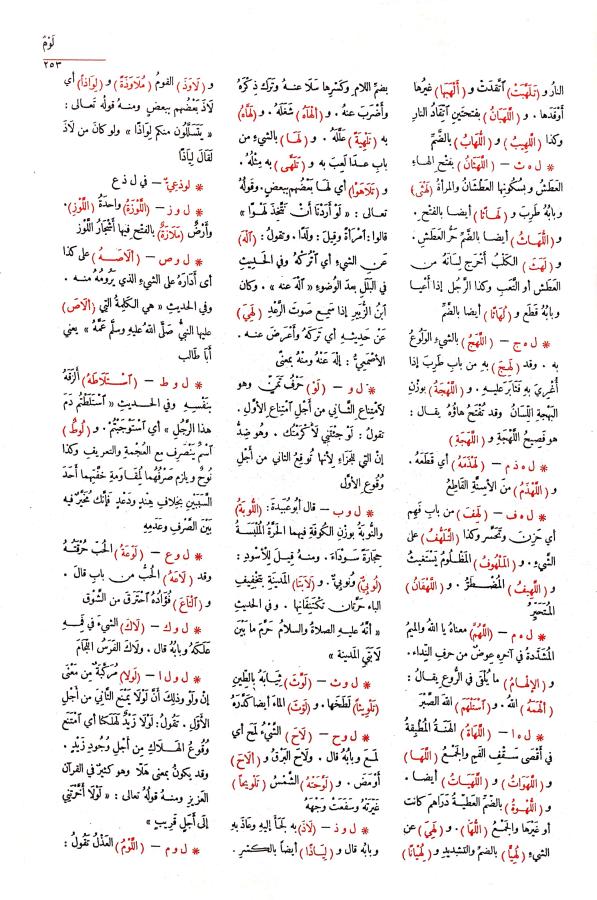 لَوْمٌ
٢٥٣
النارُ و (تَلَهَّبَتِ) ٱتَّقَدَتْ و (أَلْهَبَهَا) غيرُها
أَوْقَدَها . و (اللَّهَبَانُ) بفتحتَينِ ٱتِّقَادُ النارِ
وكذا (اللَّهِيبُ) و (اللُّهَابُ) بالضَّمِّ
* ل ه ث — (اللَّهَثَانُ) بفتح الهاءِ
العَطَشُ وبِسُكُونِها العَطْشَانُ والمرأةُ (لَهْثَى)
وبابُهُ طَرِبَ و (لَهَاثًا) أيضا بالفتحِ .
و (اللُّهَاثُ) أيضا بالضَّمِّ حَرُّ العَطَشِ .
و (لَهَثَ) الكَلْبُ أَخْرَجَ لِسَانَهُ من
العَطَشِ أو التَّعَبِ وكذا الرَّجُلُ إذا أَعْيَا
وبابُهُ قَطَعَ و (لُهَاثًا) أيضا بالضَّمِّ
* ل ه ج — (اللَّهَجُ) بالشيءِ الوَلُوعُ
به . وقد (لَهِجَ) بِهِ من بابِ طَرِبَ إذا
أُغْرِيَ بِهِ فثَابَرَ عليهِ . و (اللَّهْجَةُ) بوَزْنِ
البَهْجةِ اللِّسَانُ وقد تُفْتَحُ هاؤُهُ يقالُ :
هو فَصِيحُ اللَّهْجَةِ و (اللَّهَجَةِ)
* ل ه ذ م — (لَهْذَمَهُ) أي قَطَعَهُ .
و (اللَّهْذَمُ) مِنَ الأَسِنَّةِ القَاطِعُ
* ل ه ف — (لَهِفَ) من بابِ فَهِمَ
أي حَزِنَ وتَحَسَّرَ وكذا (التَّلَهُّفُ) على
الشيءِ . و (المَلْهُوفُ) المَظْلُومُ يَسْتَغِيثُ
و (اللَّهِيفُ) المُضْطَرُّ . و (اللَّهْفَانُ)
المُتَحَيِّرُ
* ل ه م — (اللَّهُمَّ) معناهُ يا اللهُ والميمُ
المُشَدَّدةُ في آخِرِهِ عِوَضٌ من حرفِ النِّداءِ .
و (الإِلْهامُ) ما يُلْقَى في الرُّوعِ يقالُ :
(أَلْهَمَهُ) اللهُ . و (اسْتَلْهَمَ) اللهَ الصَّبْرَ
* ل ه ا — (اللَّهَاةُ) الهَنَةُ المُطْبِقةُ
في أَقْصَى سَقْفِ الفَمِ والجَمْعُ (اللَّهَا)
و (اللَّهَوَاتُ) و (اللَّهَيَاتُ) أيضا .
و (اللُّهْوةُ) بالضَّمِّ العَطِيَّةُ دَرَاهِمَ كانت
أو غيرَها والجَمْعُ (اللُّهَا) . و (لَهِيَ) عن
الشيءِ (لُهِيًّا) بالضَّمِّ والتشديدِ و (لِهْيَانًا)
بضمِّ اللامِ وكَسْرِها سَلَا عنهُ وتركَ ذِكْرَهُ
وأَضْرَبَ عنهُ . و (أَلْهَاهُ) شَغَلَهُ . و (لَهَّاهُ)
به (تَلْهِيَةً) عَلَّلَهُ . و (لَهَا) بالشيءِ من
بابِ عدَا لَعِبَ به و (تَلَهَّى) به مِثْلُهُ .
و (تَلَاهَوْا) أي لَهَا بَعْضُهم ببعضٍ . وقولُهُ
تعالى : « لَوْ أَرَدْنَا أَنْ نَتَّخِذَ لَهْوًا »
قالوا : ٱمْرَأَةً وقِيلَ : وَلَدًا . وتقولُ : (ٱلْهَ)
عن الشيءِ أي ٱتْرُكْهُ وفي الحَدِيثِ
في البَلَلِ بعدَ الوضوءِ « ٱلْهَ عنه » . وكان
ٱبنُ الزُّبَيرِ إذا سَمِعَ صوتَ الرَّعْدِ (لَهِيَ)
عن حَدِيثِهِ أي تَرَكَهُ وأَعْرَضَ عنه .
الأَصْمَعِيُّ : ٱلْهَ عنْهُ ومنْهُ بمعنًى
* ل و — (لَوْ) حَرْفُ تَمَنٍّ وهو
لٱمْتِناعِ الثَّانِي من أَجْلِ ٱمْتِناعِ الأَوَّلِ .
تقولُ : لَوْ جِئْتَنِي لَأَكْرَمْتُكَ . وهو ضِدُّ
إنْ التي للجَزَاءِ لِأنها تُوقِعُ الثاني من أَجْلِ
وُقُوعِ الأوَّلِ
* ل و ب — قال أبو عُبَيدةَ : (اللُّوبَةُ)
والنُّوبَةُ بوزنِ الكُوفَةِ فيهما الحَرَّةُ المُلْبَسَةُ
حِجارَةً سَوْدَاءَ . ومنهُ قِيلَ للأَسْودِ :
(لُوبِيٌّ) ونُوبِيٌّ . و (لَابَتَا) المَدِينةِ بتَخْفِيفِ
الباءِ حَرَّتانِ تَكْتَنِفَانِها . وفي الحديثِ
« أنَّهُ عليهِ الصلاةُ والسلامُ حَرَّمَ ما بَيْنَ
لَابَتَيِ المَدِينةِ »
* ل و ث — (لَوَّثَ) ثِيَابَهُ بالطِّينِ
(تَلْوِيثًا) لَطَّخَهَا . و (لَوَّثَ) الماءَ أيضا كَدَّرَهُ
* ل و ح — (لَاحَ) الشَّيءُ لَمَحَ أي
لَمَعَ وبابُهُ قال . ولَاحَ البَرْقُ و (أَلَاحَ)
أَوْمَضَ . و (لَوَّحَتْهُ) الشَّمْسُ (تَلْوِيحًا)
غَيَّرَتْهُ وسَفَعَتْ وَجْهَهُ
* ل و ذ — (لَاذَ) بِهِ لَجَأَ إليهِ وعَاذَ بِهِ
وبابُهُ قال و (لِيَاذًا) أيضاً بالكَسْرِ .
و (لَاوَذَ) القومُ (مُلَاوَذَةً) و (لِوَاذًا) أي
لَاذَ بَعْضُهم ببعضٍ ومنهُ قولُهُ تعالى :
« يتَسَلَّلُونَ منكم لِوَاذًا » ولو كان من لَاذَ
لقالَ لِيَاذًا
* لوذعيّ — في ل ذ ع
* ل و ز — (اللَّوْزَةُ) واحدةُ (اللَّوْزِ) .
وأَرْضٌ (مَلَازَةٌ) بالفتحِ فيها أَشْجَارُ اللَّوْزِ
* ل و ص — (أَلَاصَهُ) على كذا
أي أَدَارَهُ على الشيءِ الذي يَرُومُهُ منه .
وفي الحديثِ « هي الكَلِمَةُ التي (أَلَاصَ)
عليها النبيُّ صَلَّى اللهُ عليهِ وسلَّمَ عَمَّهُ » يعني
أبَا طالِبٍ
* ل و ط — (اسْتَلَاطَهُ) أَلْزَقَهُ
بنَفْسِهِ وفي الحديثِ « ٱسْتَلَطْتُمْ دَمَ
هذا الرَّجُلِ » أي ٱسْتَوْجَبْتُمْ . و (لُوطٌ)
ٱسْمٌ يَنْصَرِفُ مع العُجْمةِ والتعريفِ وكذا
نُوحٌ ويلزَمُ صَرْفُهُما لمُقَاوَمةِ خِفَّتِهما أَحَدَ
السَّبَبَيْنِ بخلافِ هِنْدٍ ودَعْدٍ فإنَّكَ مُخَيَّرٌ فيه
بَيْنَ الصَّرْفِ وعَدَمِهِ
* ل و ع — (لَوْعَةُ) الحُبِّ حُرْقَتُهُ
وقد (لَاعَهُ) الحُبُّ من بابِ قالَ .
و (ٱلْتَاعَ) فُؤَادُهُ ٱحْتَرَقَ من الشَّوْقِ
* ل و ك — (لَاكَ) الشيءَ في فَمِهِ
عَلَكَهُ وبابُهُ قال . ولَاكَ الفَرَسُ اللِّجَامَ
* ل و ل ا — (لَوْلَا) مُرَكَّبَةٌ من مَعْنَى
إنْ ولَوْ وذلكَ أنَّ لَوْلَا يَمْنَعُ الثَّانِيَ من أَجْلِ
الأَوَّلِ . تقُولُ : لَوْلَا زَيْدٌ لهَلَكْنَا أي ٱمْتَنَعَ
وُقُوعُ الهَلَاكِ من أَجْلِ وُجُودِ زَيدٍ .
وقد يكونُ بمعنى هَلَّا وهو كثيرٌ في القرآنِ
العَزيزِ ومنه قولُهُ تعالى : « لَوْلَا أَخَّرْتَنِي
إلى أَجَلٍ قَرِيبٍ »
* ل و م — (اللَّوْمُ) العَذْلُ تقُولُ :